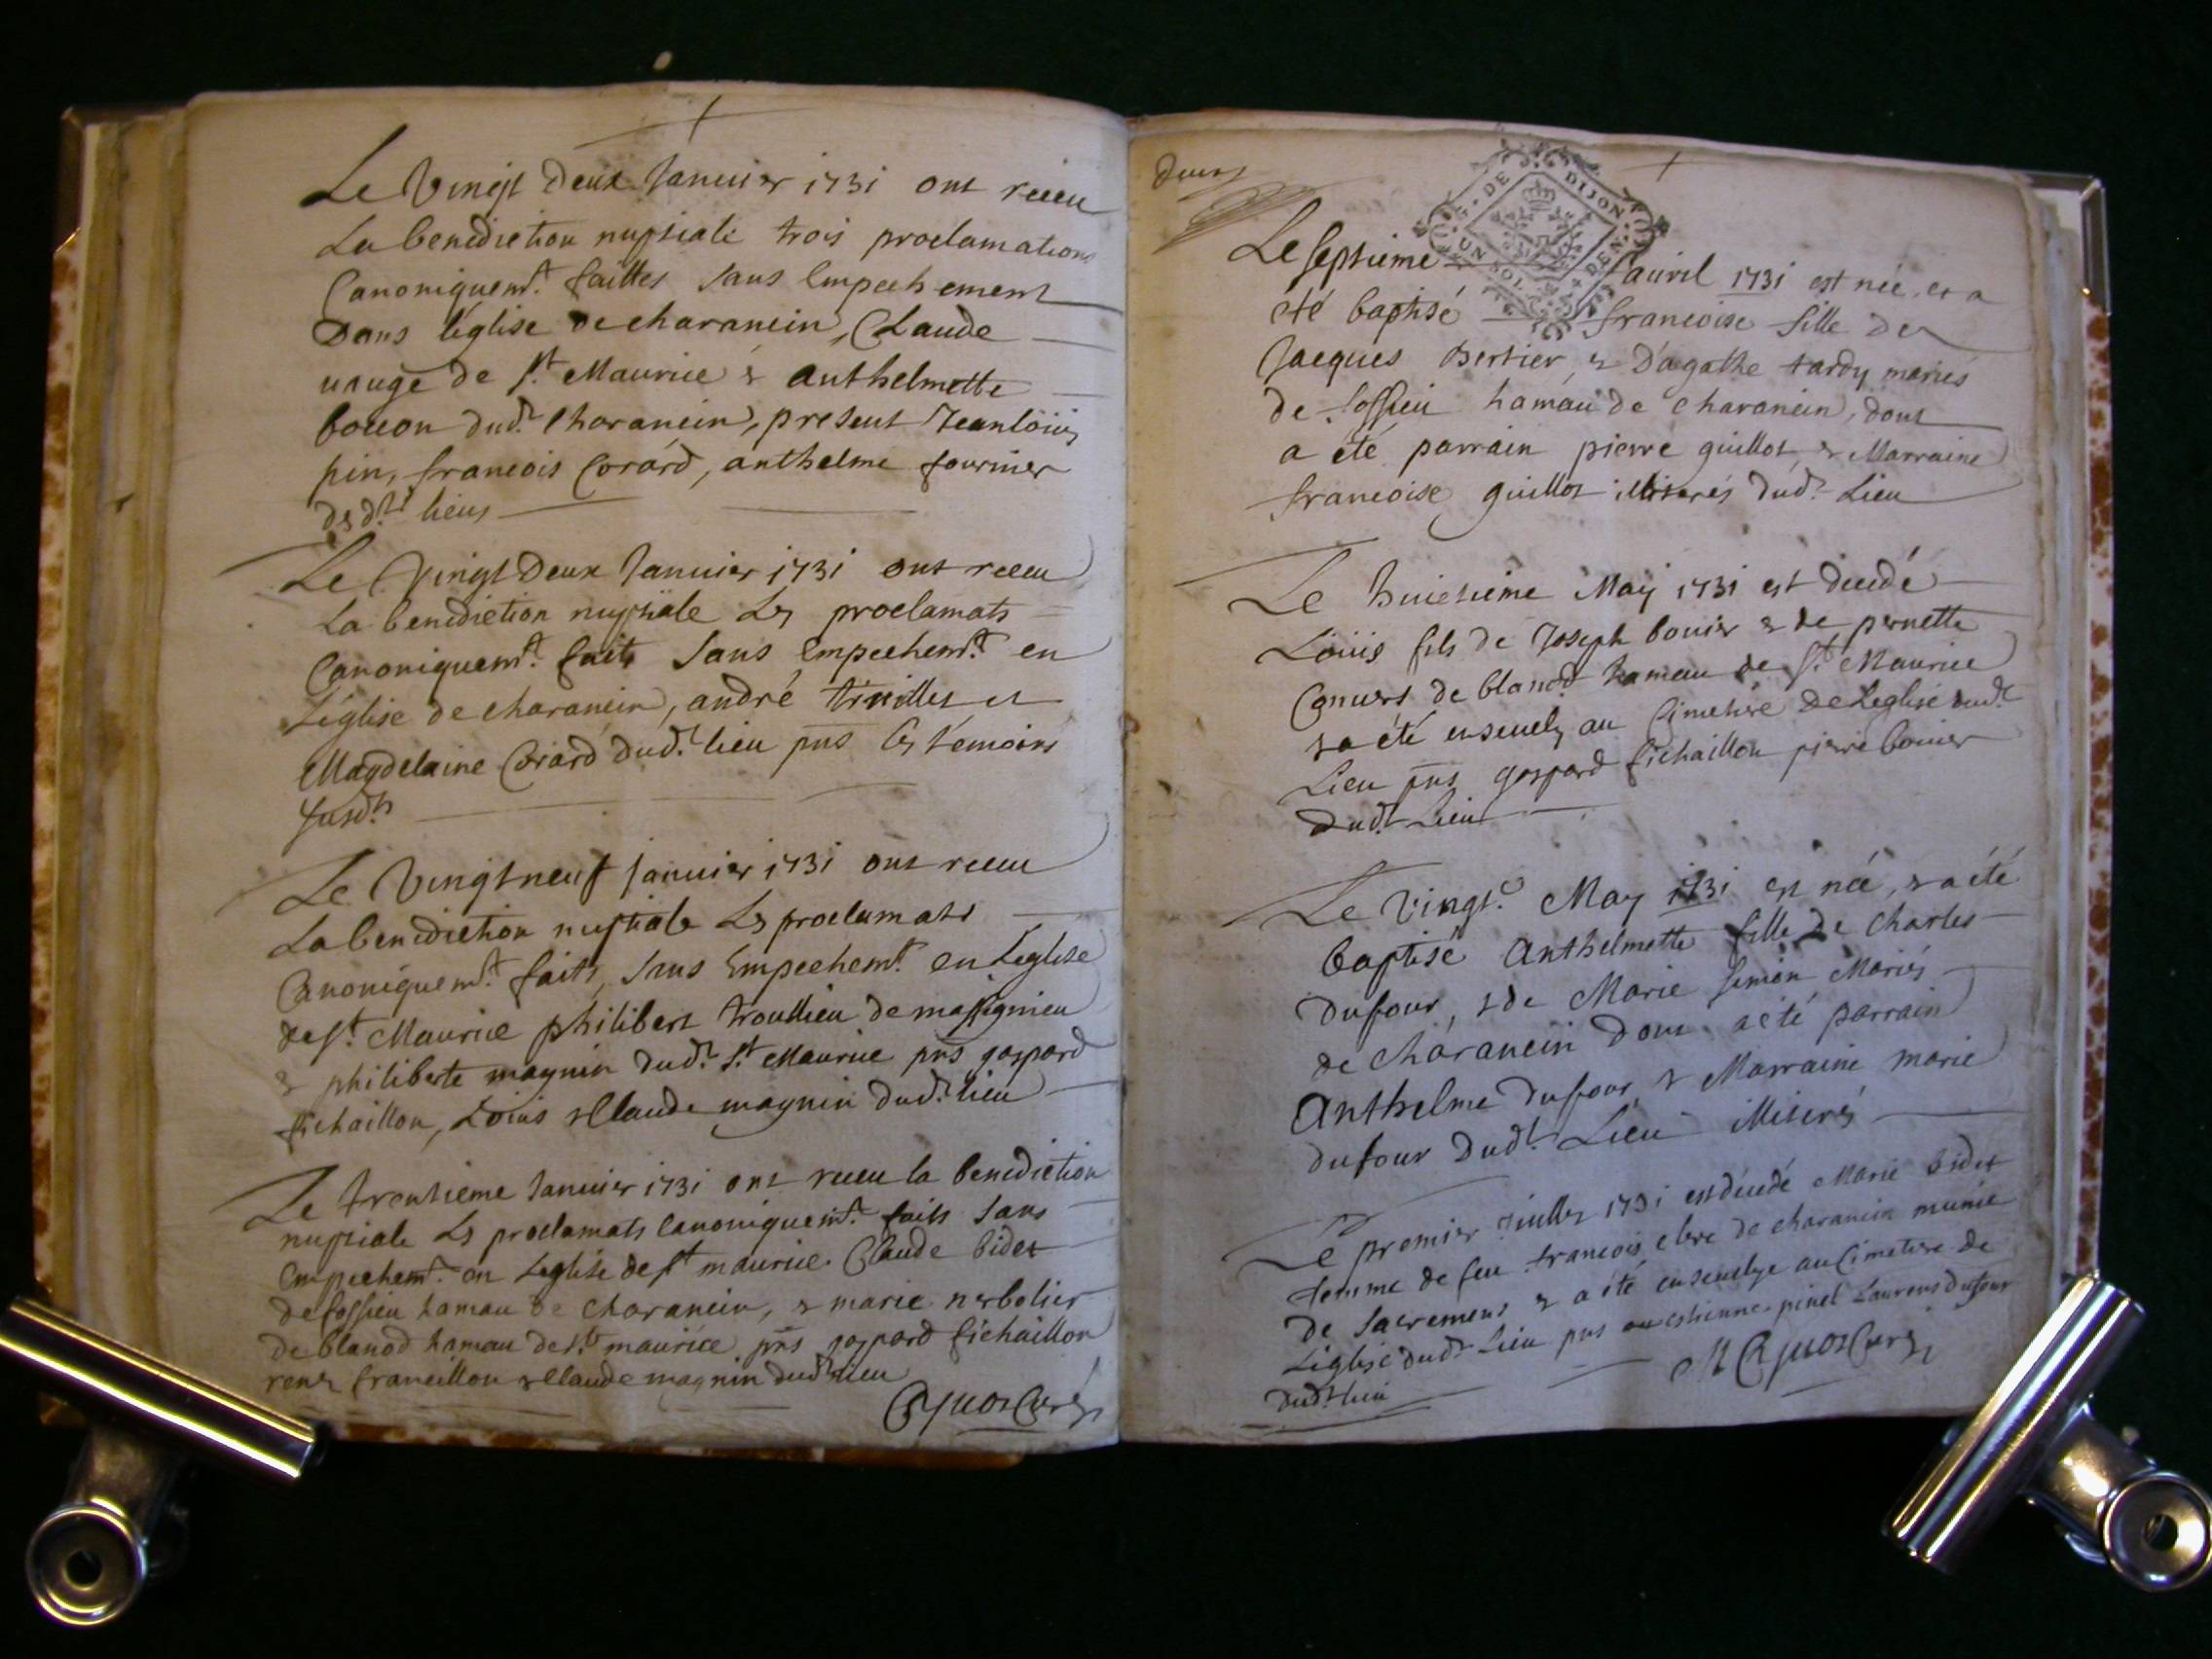 Le Vingt Deux Januier 1731 ont receu
La benediction nuptiale trois proclamations
Canoniquemt. faittes sans Empechement
Dans l'église de charancin, Claude
de st. Maurice & Anthelmette
bouon dudt. Charancin, present Jean loüis
pin, francois Corard, anthelme fournier
desdts. lieux
Le Vingt Deux Januier 1731 ont receu
La benediction nuptiale Les proclamats
Canoniquemt. faits sans Empechemt. en
L'église de charancin, andré et
Magdelaine Corard dudt. lieu pns les témoins
susdts
Le Vingt neuf januier 1731 ont receu
La benediction nuptiale Les proclamats
Canoniquemt. faits, sans Empechemt. en Leglise
de st. Maurice philibert troullieu de massignieu
& philiberte magnin dudt. st. Maurice pns gaspard
fichaillon, Loüis & Claude magnin dudt. lieu
Le trentieme Januier 1731 ont receu la benediction
nuptiale Les proclamats Canoniquemt. faits sans
Empechemt. en Leglise de st maurice Claude bidet
de sossieu hamau de charancin, & marie nerbolier
de blanod hamau de st. maurice pns gaspard fichaillon
rené francillon & Claude magnin dudt lieu
Curé
Deux
G. DE DIJON
UN SOL. DEN.
Le septieme auril 1731 est née, et a
été baptisé francoise fille de
Jacques Bertier, & D'agathe tardy mariés
de sossieu hamau de charancin, dont
a été parrain pierre guillot, & Marraine
francoise guillot illiterés dudt. Lieu
Le huictieme May 1731 est decedé
Loüis fils de Joseph bouier & de pernette
de blanod hameau de st. Maurice
& a été enseuely au Cimetiere De Leglise dudt.
Lieu pns gaspard fichaillon pierre bouier
Dudt. Lieu
Le vingt.e May 1731 est née, & a été
baptisé Anthelmette fille de Charles
Dufour, & de Marie simon Mariés
de Charancin Dont a été parrain
Anthelme Dufour, & Marraine marie
dufour Dudt. Lieu illiterés
Le premier Juillet 1731 est décedé Marie bidet
femme de feu francois clerc de charancin munie
De sacremens & a été enseuelye au Cimetiere de
Léglise dudt. Lieu pns estienne pinel Laurens dufour
dudt. lieu
Curé